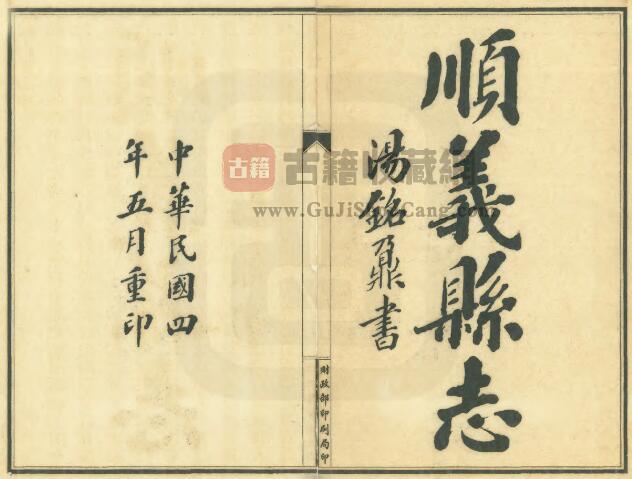 順義縣志
湯銘鼐書
財政部印刷局印
中華民國四
年五月重印
古籍
古籍收藏
www.GuJiShouCang.com